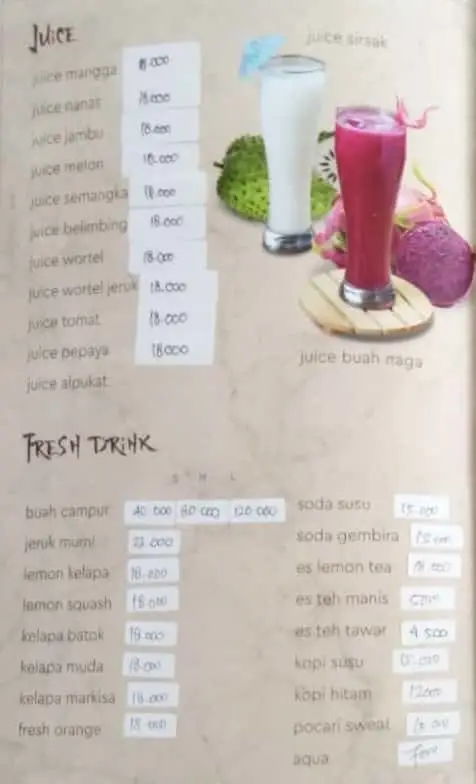 JUICE
juice sirsak
juice mangga 18.000
juice nanas 18.000
juice jambu 18.000
juice melon 18.000
juice semangka 18.000
juice belimbing 18.000
juice wortel 18.000
juice wortel jeruk 18.000
juice tomat 18.000
juice pepaya 18.000
juice buah naga
juice alpukat
FRESH DRINK
S M L
buah campur 40.000 80.000 120.000
jeruk murni 23.000
lemon kelapa 18.000
lemon squash 18.000
kelapa batok 18.000
kelapa muda 18.000
kelapa markisa 18.000
fresh orange 18.000
soda susu 15.000
soda gembira
es lemon tea
es teh manis
es teh tawar 4.500
kopi susu 15.000
kopi hitam 12000
pocari sweat
aqua